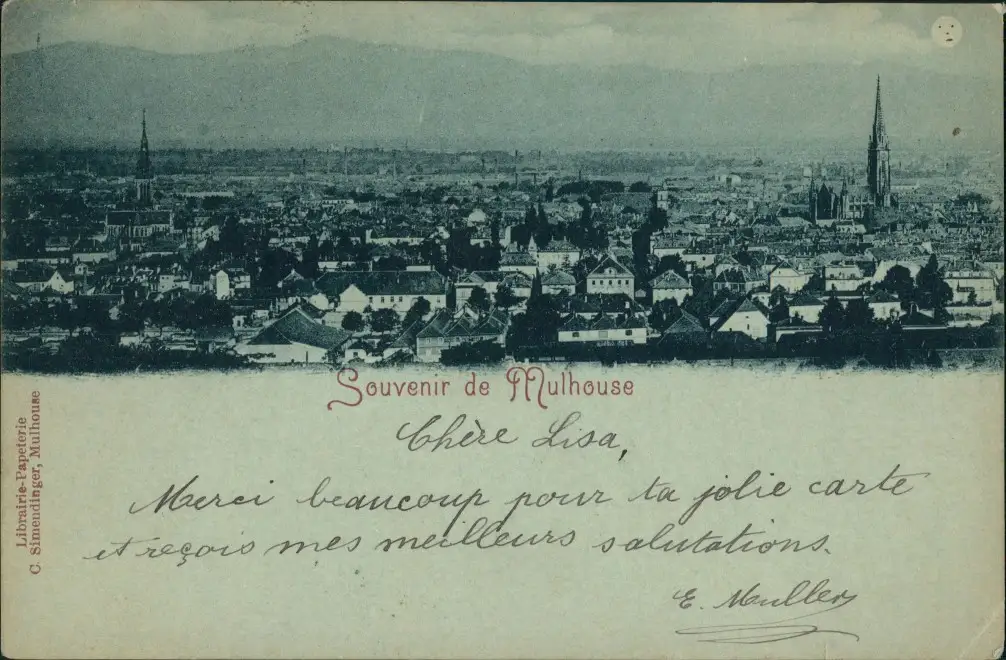 Souvenir de Mulhouse
Chère Lisa,
Merci beaucoup pour ta jolie carte
et reçois mes meilleurs salutations.
E. Muller
Librairie-Papeterie
C. Simeudinger, Mulhouse